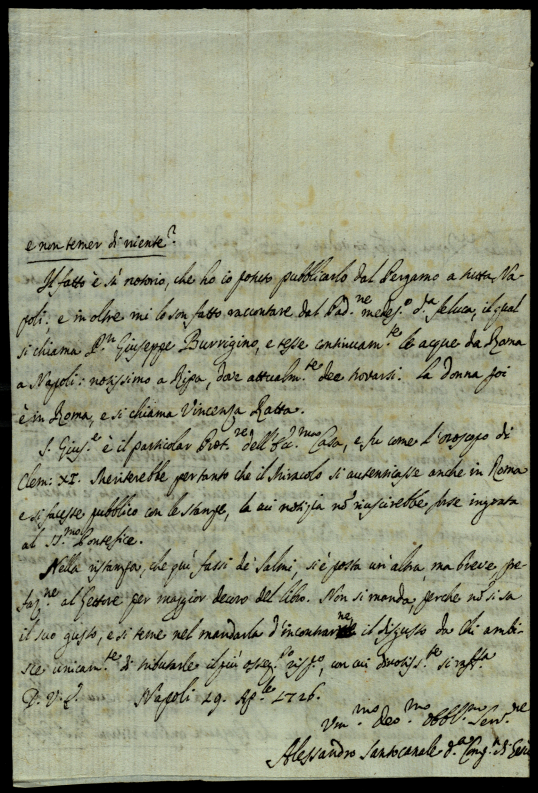 e non temer di niente?
Il fatto è sì notorio, che ho io potuto pubblicarlo dal Pergamo a tutta Na-
poli; e inoltre mi lo son fatto raccontare dal Pad.ne med.o d.a feluca, il qual
si chiama P.n Giuseppe Burrigino, e tesse continuam.te le acque da Roma
a Napoli: notissimo a Ripa, dove attualm.te dee trovarsi. La donna poi
è in Roma, e si chiama Vincenza Ratta.
S. Gius.e è il particolar Prot.re dell'Ecc.ma Casa, e fu come l'oroscopo di
Clem: XI. Meriterebbe pertanto che il Miracolo si autenticasse anche in Roma
e si facesse pubblico con le stampe, la cui notizia nō riuscirebbe forse ingrata
al SS.mo Pontefice.
Nella ristampa, che quì fassi de' Salmi, si è posta un'altra, ma breve pre-
faz.ne al Lettore per maggior decoro del libro. Non si manda, perche nō si sa
il suo gusto, e si teme nel mandarla d'incontrarne il disgusto da chi ambi-
sce unicam.te di tributarle il più osseq.o risp.o, con cui divotiss.te si raff.a
D. V. S. Napoli 29. Ag.to 1726.
Um.mo Dev.mo Obbl.mo Serv.re
Alessandro Santocanale d.a Comp.a di Gesù